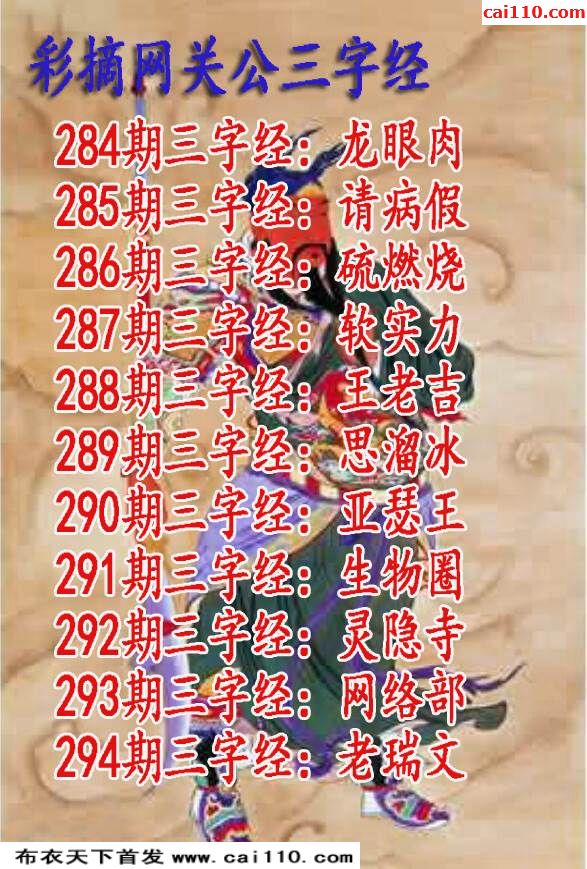 cai110.com
彩摘网关公三字经
284期三字经：龙眼肉
285期三字经：请病假
286期三字经：硫燃烧
287期三字经：软实力
288期三字经：王老吉
289期三字经：思溜冰
290期三字经：亚瑟王
291期三字经：生物圈
292期三字经：灵隐寺
293期三字经：网络部
294期三字经：老瑞文
布衣天下首发 www.cai110.com